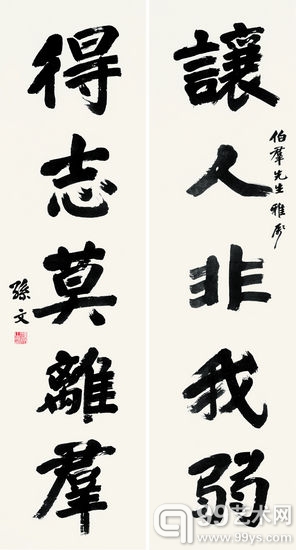 讓人非我弱
伯羣先生雅屬
得志莫離羣
孫文
99艺术网
www.99ys.com